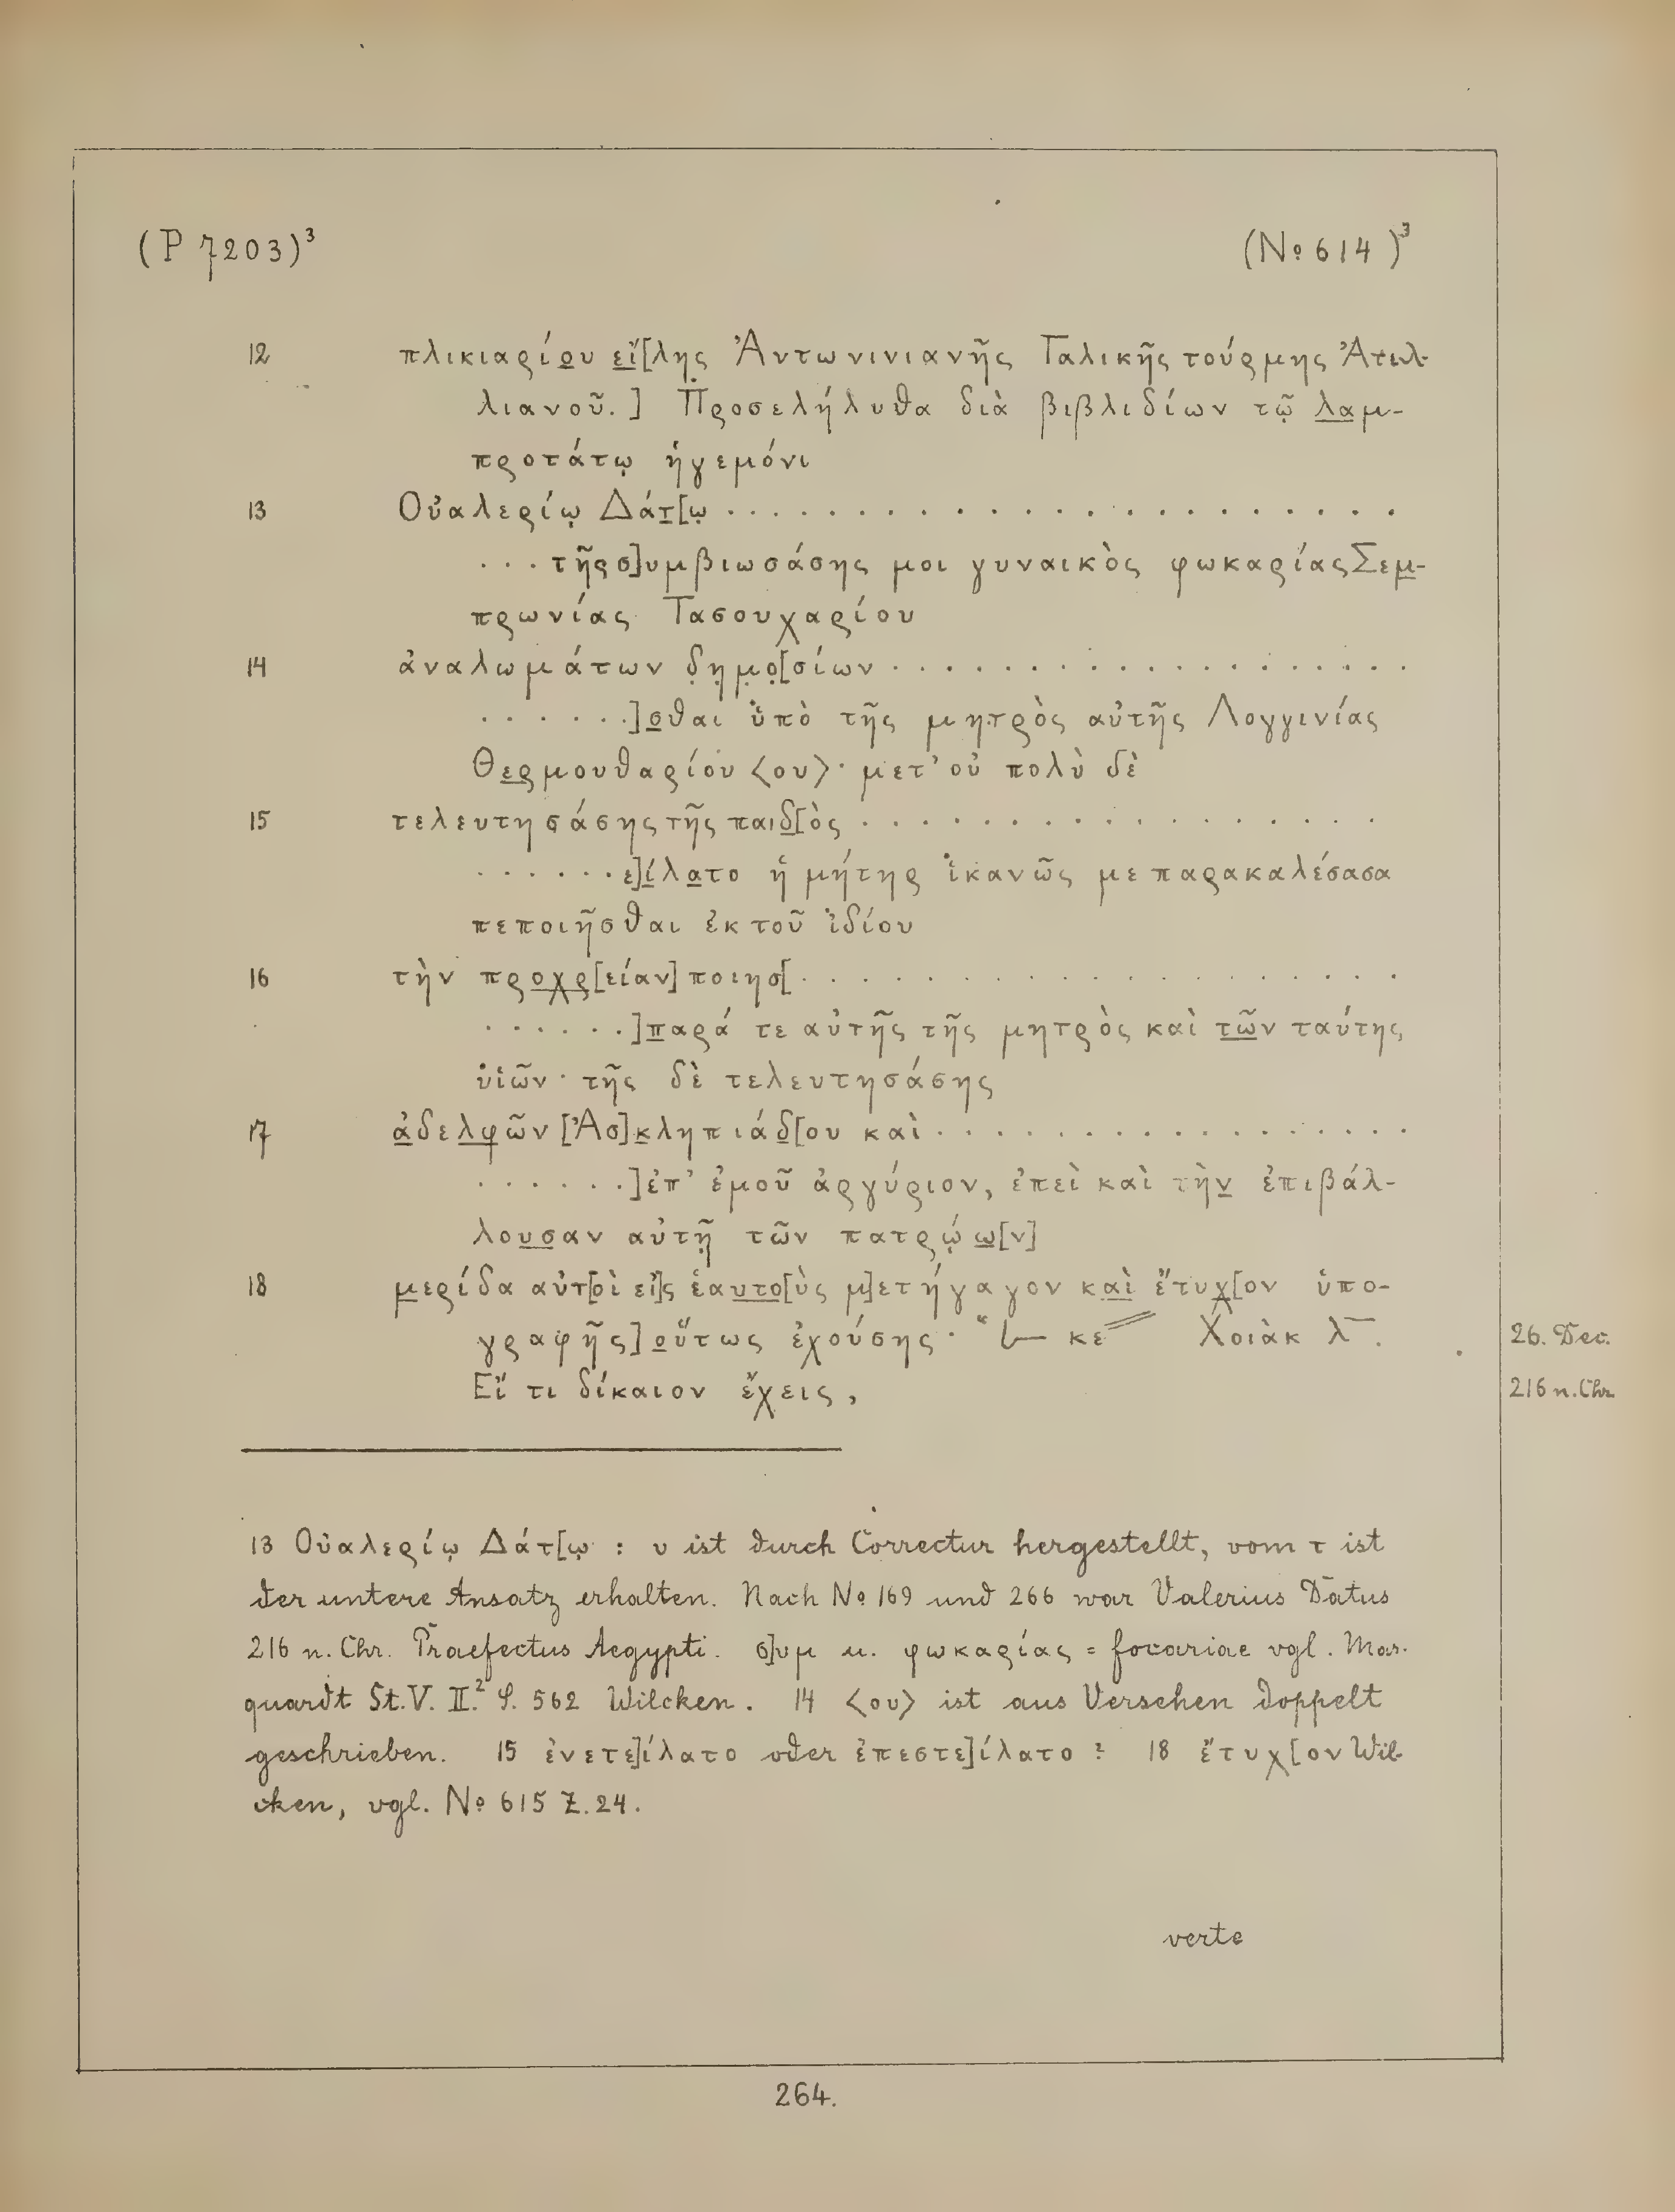 (P 7203)³ (Nº 614)³
12 πλικιαρίου εἴ[λης Ἀντωνινιανῆς Γαλικῆς τούρμης Ἀτιλ-
λιανοῦ.] Προσελήλυθα διὰ βιβλιδίων τῷ λαμ-
προτάτῳ ἡγεμόνι
13 Οὐαλερίῳ Δάτ[ῳ . . . . . . . . . . . . . . . . . . . . . .
. . . τῆς σ]υμβιωσάσης μοι γυναικὸς φωκαρίας Σεμ-
πρωνίας Τασουχαρίου
14 ἀναλωμάτων δημο[σίων . . . . . . . . . . . . . . . . . .
. . . . . .]σθαι ὑπὸ τῆς μητρὸς αὐτῆς Λογγινίας
Θερμουθαρίου 〈ου〉· μετ' οὐ πολὺ δὲ
15 τελευτησάσης τῆς παιδ[ὸς . . . . . . . . . . . . . . . . .
. . . . . . ε]ίλατο ἡ μήτηρ ἱκανῶς με παρακαλέσασα
πεποιῆσθαι ἐκ τοῦ ἰδίου
16 τὴν προχρ[είαν] ποιησ[. . . . . . . . . . . . . . .
. . . . . .]παρά τε αὐτῆς τῆς μητρὸς καὶ τῶν ταύτης
υἱῶν· τῆς δὲ τελευτησάσης
17 ἀδελφῶν [Ἀσ]κληπιάδ[ου καὶ . . . . . . . . . . . . . . . .
. . . . . .]ἐπ' ἐμοῦ ἀργύριον, ἐπεὶ καὶ τὴν ἐπιβάλ-
λουσαν αὐτῇ τῶν πατρῴω[ν]
18 μερίδα αὐτ[οὶ εἰ]ς ἑαυτο[ὺς μ]ετήγαγον καὶ ἔτυχ[ον ὑπο-
γραφῆς] οὕτως ἐχούσης· “ 𐅹 κε⫽ Χοιὰκ λ̅. 26. Dec.
Εἴ τι δίκαιον ἔχεις, 216 n. Chr.
13 Οὐαλερίῳ Δάτ[ῳ : υ ist durch Correctur hergestellt, vom τ ist
der untere Ansatz erhalten. Nach Nº 169 und 266 war Valerius Datus
216 n. Chr. Praefectus Aegypti. σ]υμ u. φωκαρίας = focariae vgl. Mar-
quardt St.V. II.² S. 562 Wilcken. 14 〈ου〉 ist aus Versehen doppelt
geschrieben. 15 ἐνετε]ίλατο oder ἐπεστε]ίλατο ? 18 ἔτυχ[ον Wil-
cken, vgl. Nº 615 Z. 24.
verte
264.